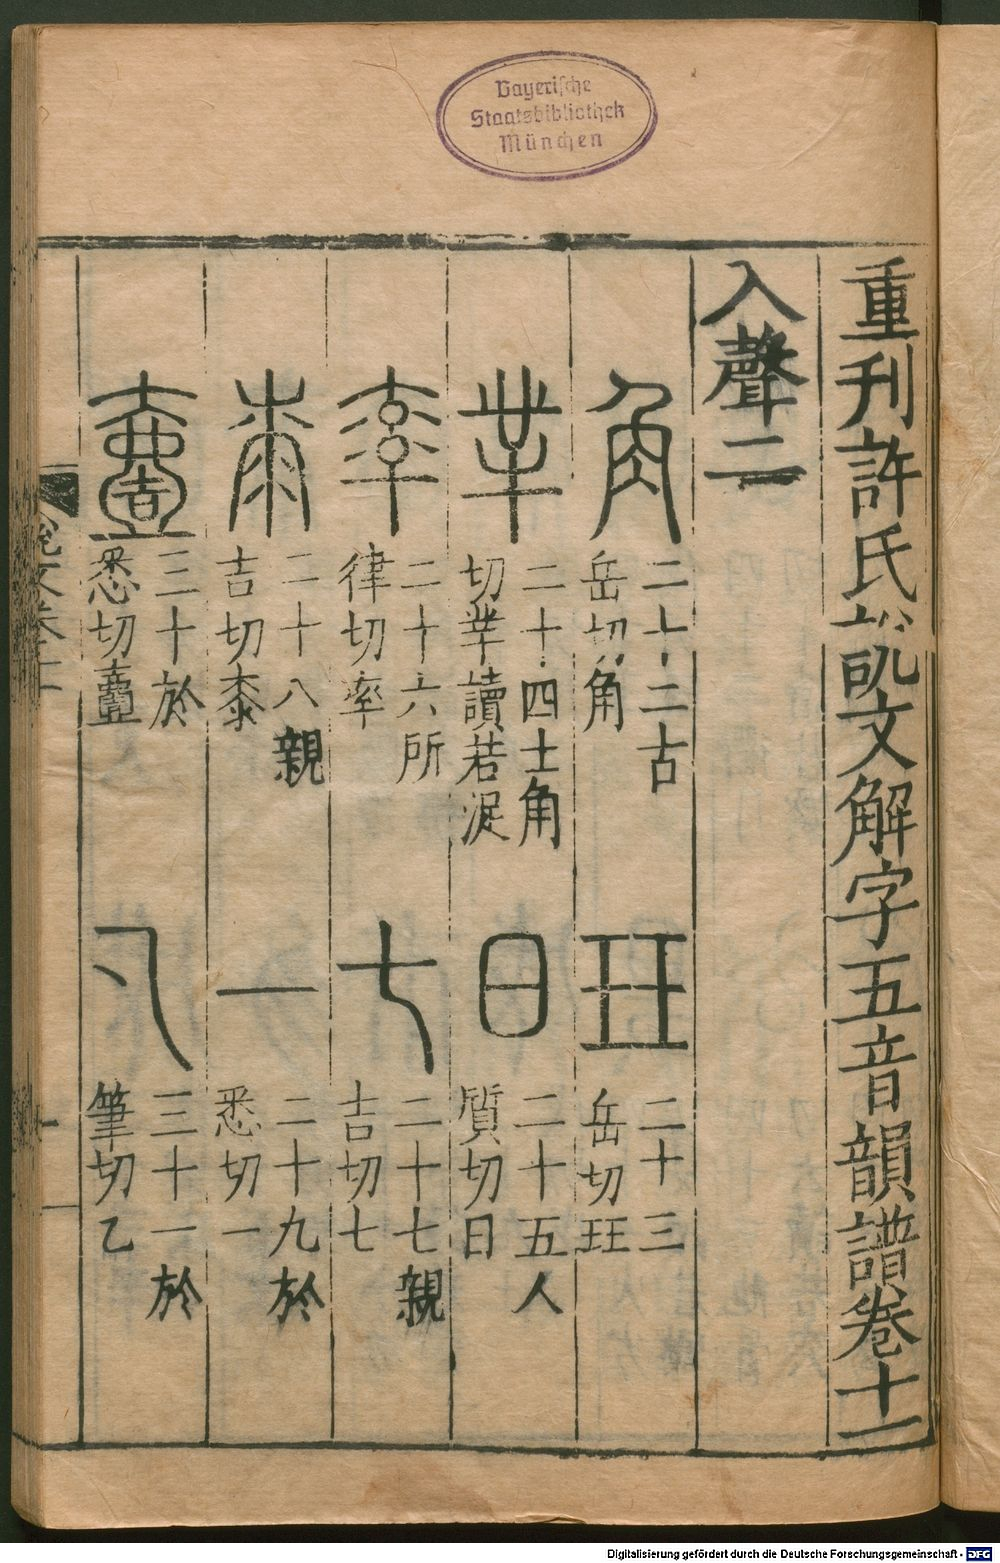 Bayerische
Staatsbibliothek
München
重刊許氏說文解字五音韻譜卷十一
入聲二
角 二十二古岳切角 玨 二十三岳切玨
丵 二十四士角切丵讀若浞 日 二十五人質切日
率 二十六所律切率 七 二十七親吉切七
桼 二十八親吉切桼 一 二十九於悉切一
壹 三十於悉切壹 乙 三十一於筆切乙
Digitalisierung gefördert durch die Deutsche Forschungsgemeinschaft - DFG